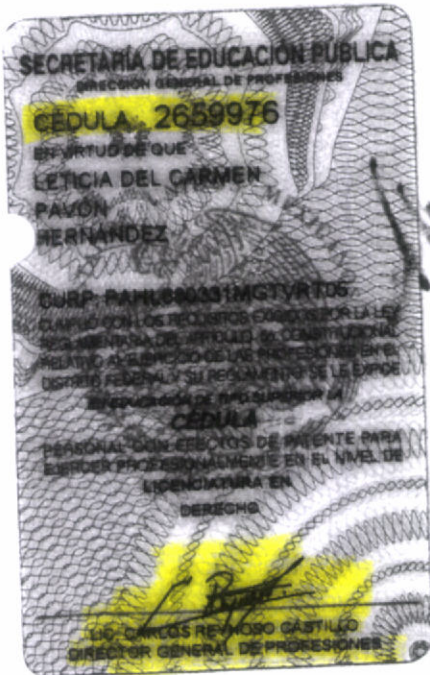 SECRETARÍA DE EDUCACIÓN PÚBLICA
DIRECCIÓN GENERAL DE PROFESIONES
CÉDULA 2659976
EN VIRTUD DE QUE
LETICIA DEL CARMEN
PAVÓN
HERNÁNDEZ
CURP:
CUMPLIÓ CON LOS REQUISITOS EXIGIDOS POR LA LEY
REGLAMENTARIA DEL ARTÍCULO 5o. CONSTITUCIONAL
RELATIVO AL EJERCICIO DE LAS PROFESIONES EN EL
DISTRITO FEDERAL Y SU REGLAMENTO SE LE EXPIDE
EN EDUCACIÓN DE TIPO SUPERIOR LA
CÉDULA
PERSONAL CON EFECTOS DE PATENTE PARA
EJERCER PROFESIONALMENTE EN EL NIVEL DE
LICENCIATURA EN
DERECHO
LIC. CARLOS REYNOSO CASTILLO
DIRECTOR GENERAL DE PROFESIONES